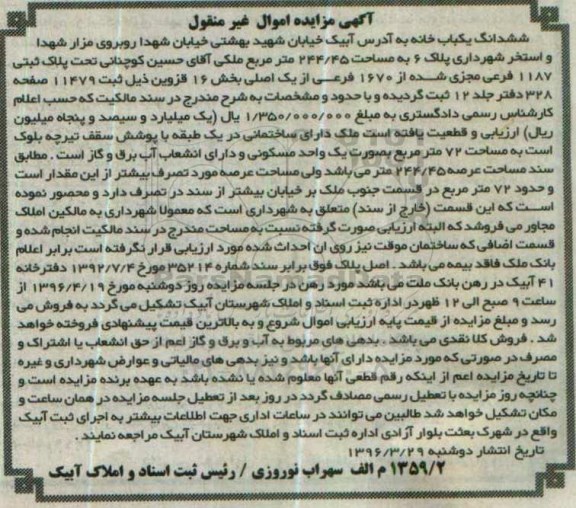 آگهی مزایده اموال غیر منقول
ششدانگ یکباب خانه به آدرس آبیک خیابان شهید بهشتی خیابان شهدا روبروی مزار شهدا
و استخر شهرداری پلاک ۶ به مساحت ۲۴۴/۴۵ متر مربع ملکی آقای حسین کوچنانی تحت پلاک ثبتی
۱۱۸۷ فرعی مجزی شده از ۱۶۷۰ فرعی از یک اصلی بخش ۱۶ قزوین ذیل ثبت ۱۱۴۷۹ صفحه
۳۲۸ دفتر جلد ۱۲ ثبت گردیده و با حدود و مشخصات به شرح مندرج در سند مالکیت که حسب اعلام
کارشناس رسمی دادگستری به مبلغ ۱/۳۵۰/۰۰۰/۰۰۰ یال (یک میلیارد و سیصد و پنجاه میلیون
ریال) ارزیابی و قطعیت یافته است ملک دارای ساختمانی در یک طبقه با پوشش سقف تیرچه بلوک
است به مساحت ۷۲ متر مربع بصورت یک واحد مسکونی و دارای انشعاب آب برق و گاز است . مطابق
سند مساحت عرصه ۲۴۴/۴۵ متر می باشد ولی مساحت عرصه مورد تصرف بیشتر از این مقدار است
و حدود ۷۲ متر مربع در قسمت جنوب ملک بر خیابان بیشتر از سند در تصرف دارد و محصور نموده
است که این قسمت (خارج از سند) متعلق به شهرداری است که معمولا شهرداری به مالکین املاک
مجاور می فروشد که البته ارزیابی صورت گرفته نسبت به مساحت مندرج در سند مالکیت انجام شده و
قسمت اضافی که ساختمان موقت نیز روی آن احداث شده مورد ارزیابی قرار نگرفته است برابر اعلام
بانک ملت فاقد بیمه می باشد . اصل پلاک فوق برابر سند شماره ۳۵۲۱۴ مورخ ۱۳۹۲/۷/۴ دفترخانه
۴۱ آبیک در رهن بانک ملت می باشد مورد رهن در جلسه مزایده روز دوشنبه مورخ ۱۳۹۶/۴/۱۹ از
ساعت ۹ صبح الی ۱۲ ظهر در اداره ثبت اسناد و املاک شهرستان آبیک تشکیل می گردد به فروش می
رسد و مبلغ مزایده از قیمت پایه ارزیابی اموال شروع و به بالاترین قیمت پیشنهادی فروخته خواهد
شد . فروش کلا نقدی می باشد . بدهی های مربوط به آب و برق و گاز اعم از حق انشعاب یا اشتراک و
مصرف در صورتی که مورد مزایده دارای آنها باشد و نیز بدهی های مالیاتی و عوارض شهرداری و غیره
تا تاریخ مزایده اعم از اینکه رقم قطعی آنها معلوم شده یا نشده باشد به عهده برنده مزایده است و
چنانچه روز مزایده با تعطیل رسمی مصادف گردد در روز بعد از تعطیل جلسه مزایده در همان ساعت و
مکان تشکیل خواهد شد طالبین می توانند در ساعات اداری جهت اطلاعات بیشتر به اجرای ثبت آبیک
واقع در شهرک بعثت بلوار آزادی اداره ثبت اسناد و املاک شهرستان آبیک مراجعه نمایند .
تاریخ انتشار دوشنبه ۱۳۹۶/۳/۲۹
۱۳۵۹/۲ م الف سهراب نوروزی / رئیس ثبت اسناد و املاک آبیک